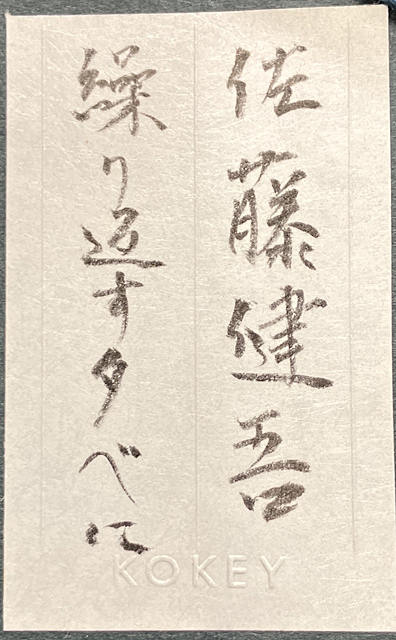 佐藤健吾
繰り返す夕べに
KOKEY